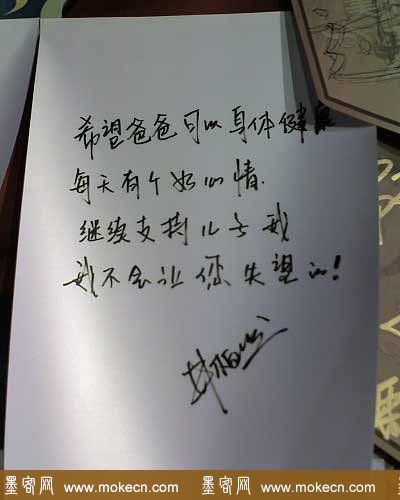 希望爸爸可以身体健康
每天有个好心情.
继续支持儿子我
我不会让你失望的!
墨客网 www.mokecn.com 墨客网 www.mokecn.com